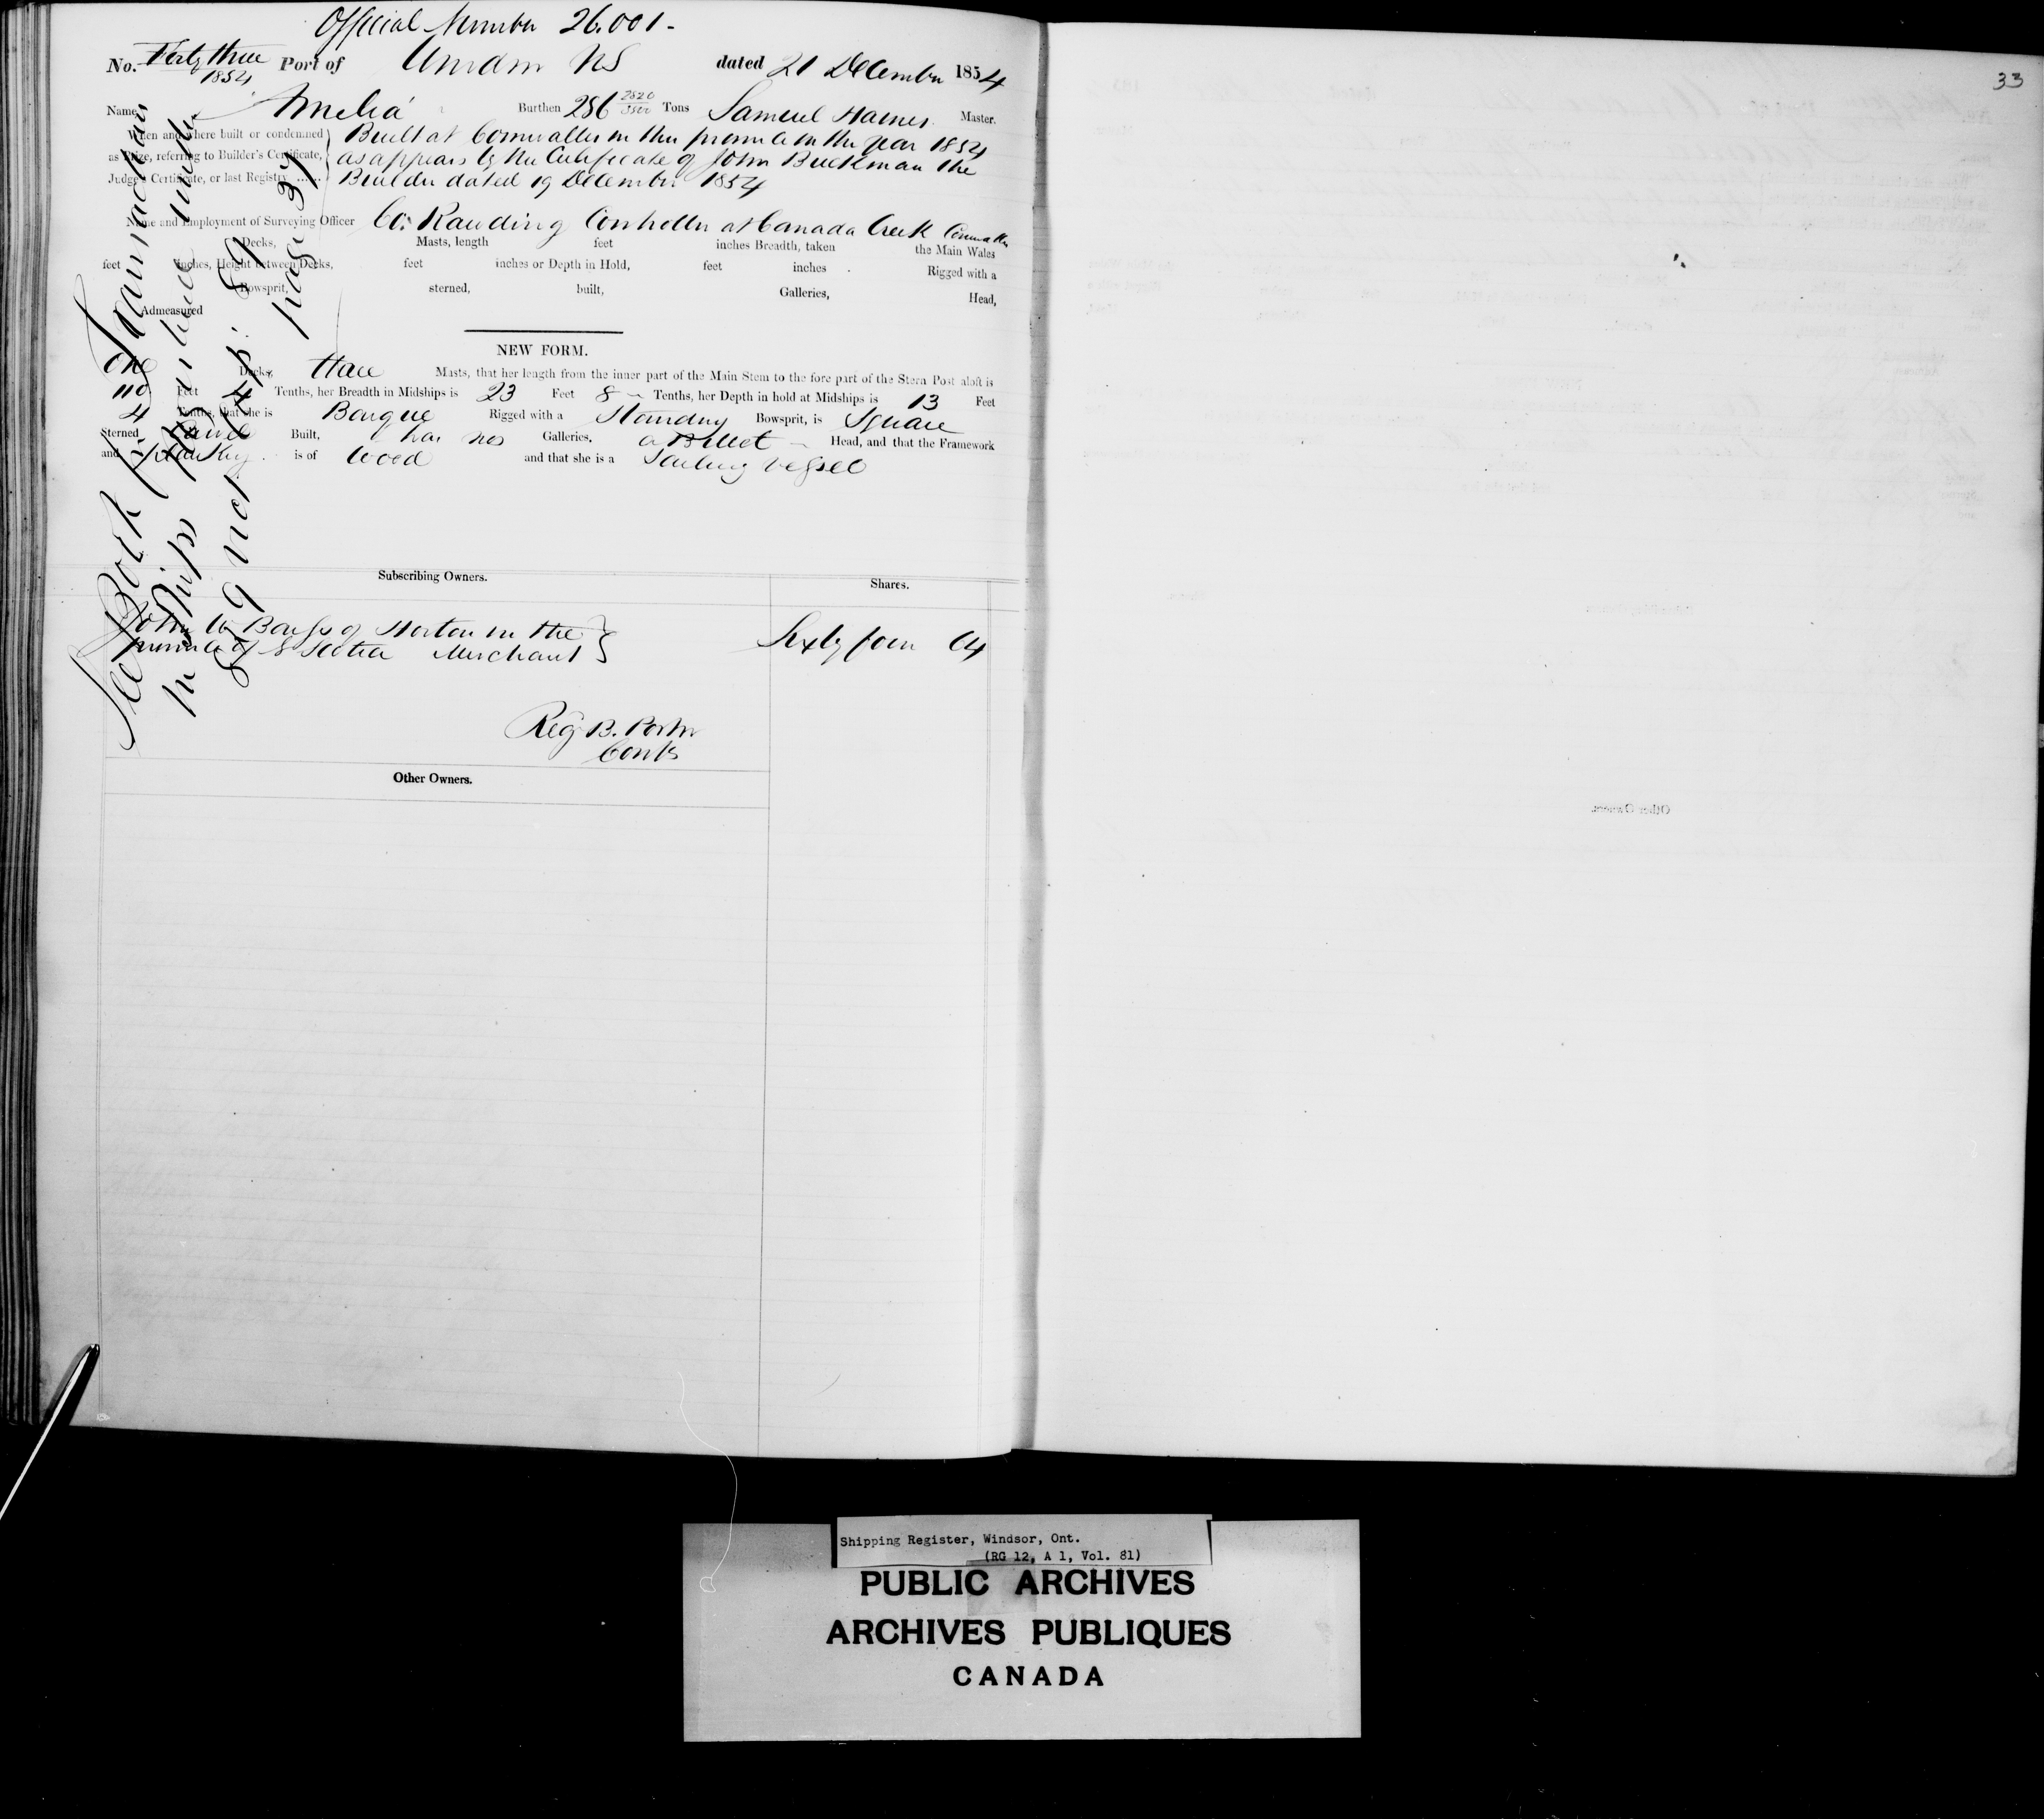 Official Number 26.001-
No. Forty three Port of Windsor NS dated 21 December 1854
1854
Name Amelia Burthen 286 2820/3500 Tons Samuel Haines Master.
When and where built or condemned Built at Cornwallis in this province in the year 1854
as Prize, referring to Builder's Certificate, as appears by the Certificate of John Buckman the
Judge's Certificate, or last Registry ...... Builder dated 19 December 1854
Name and Employment of Surveying Officer Rawding Controller at Canada Creek Cornwallis
Decks, Masts, length feet inches Breadth, taken the Main Wales
feet inches, Height between Decks, feet inches or Depth in Hold, feet inches Rigged with a
Bowsprit, sterned, built, Galleries, Head,
Admeasured
NEW FORM.
One Decks, three Masts, that her length from the inner part of the Main Stem to the fore part of the Stern Post aloft is
110 Feet Tenths, her Breadth in Midships is 23 Feet 8 Tenths, her Depth in hold at Midships is 13 Feet
4 Tenths, that she is Barque Rigged with a Standing Bowsprit, is Square
Sterned Carvel Built, has no Galleries, a Billet Head, and that the Framework
and Planking is of Wood and that she is a Sailing vessel
Subscribing Owners. Shares.
John W Barss of Horton in the
province of N Scotia Merchant Sixty four 64
Reg B. Porter
Contr
Other Owners.
See Book for Transactions
in Ships Registered under
page 37
33
Shipping Register, Windsor, Ont.
(RG 12, A 1, Vol. 81)
PUBLIC ARCHIVES
ARCHIVES PUBLIQUES
CANADA